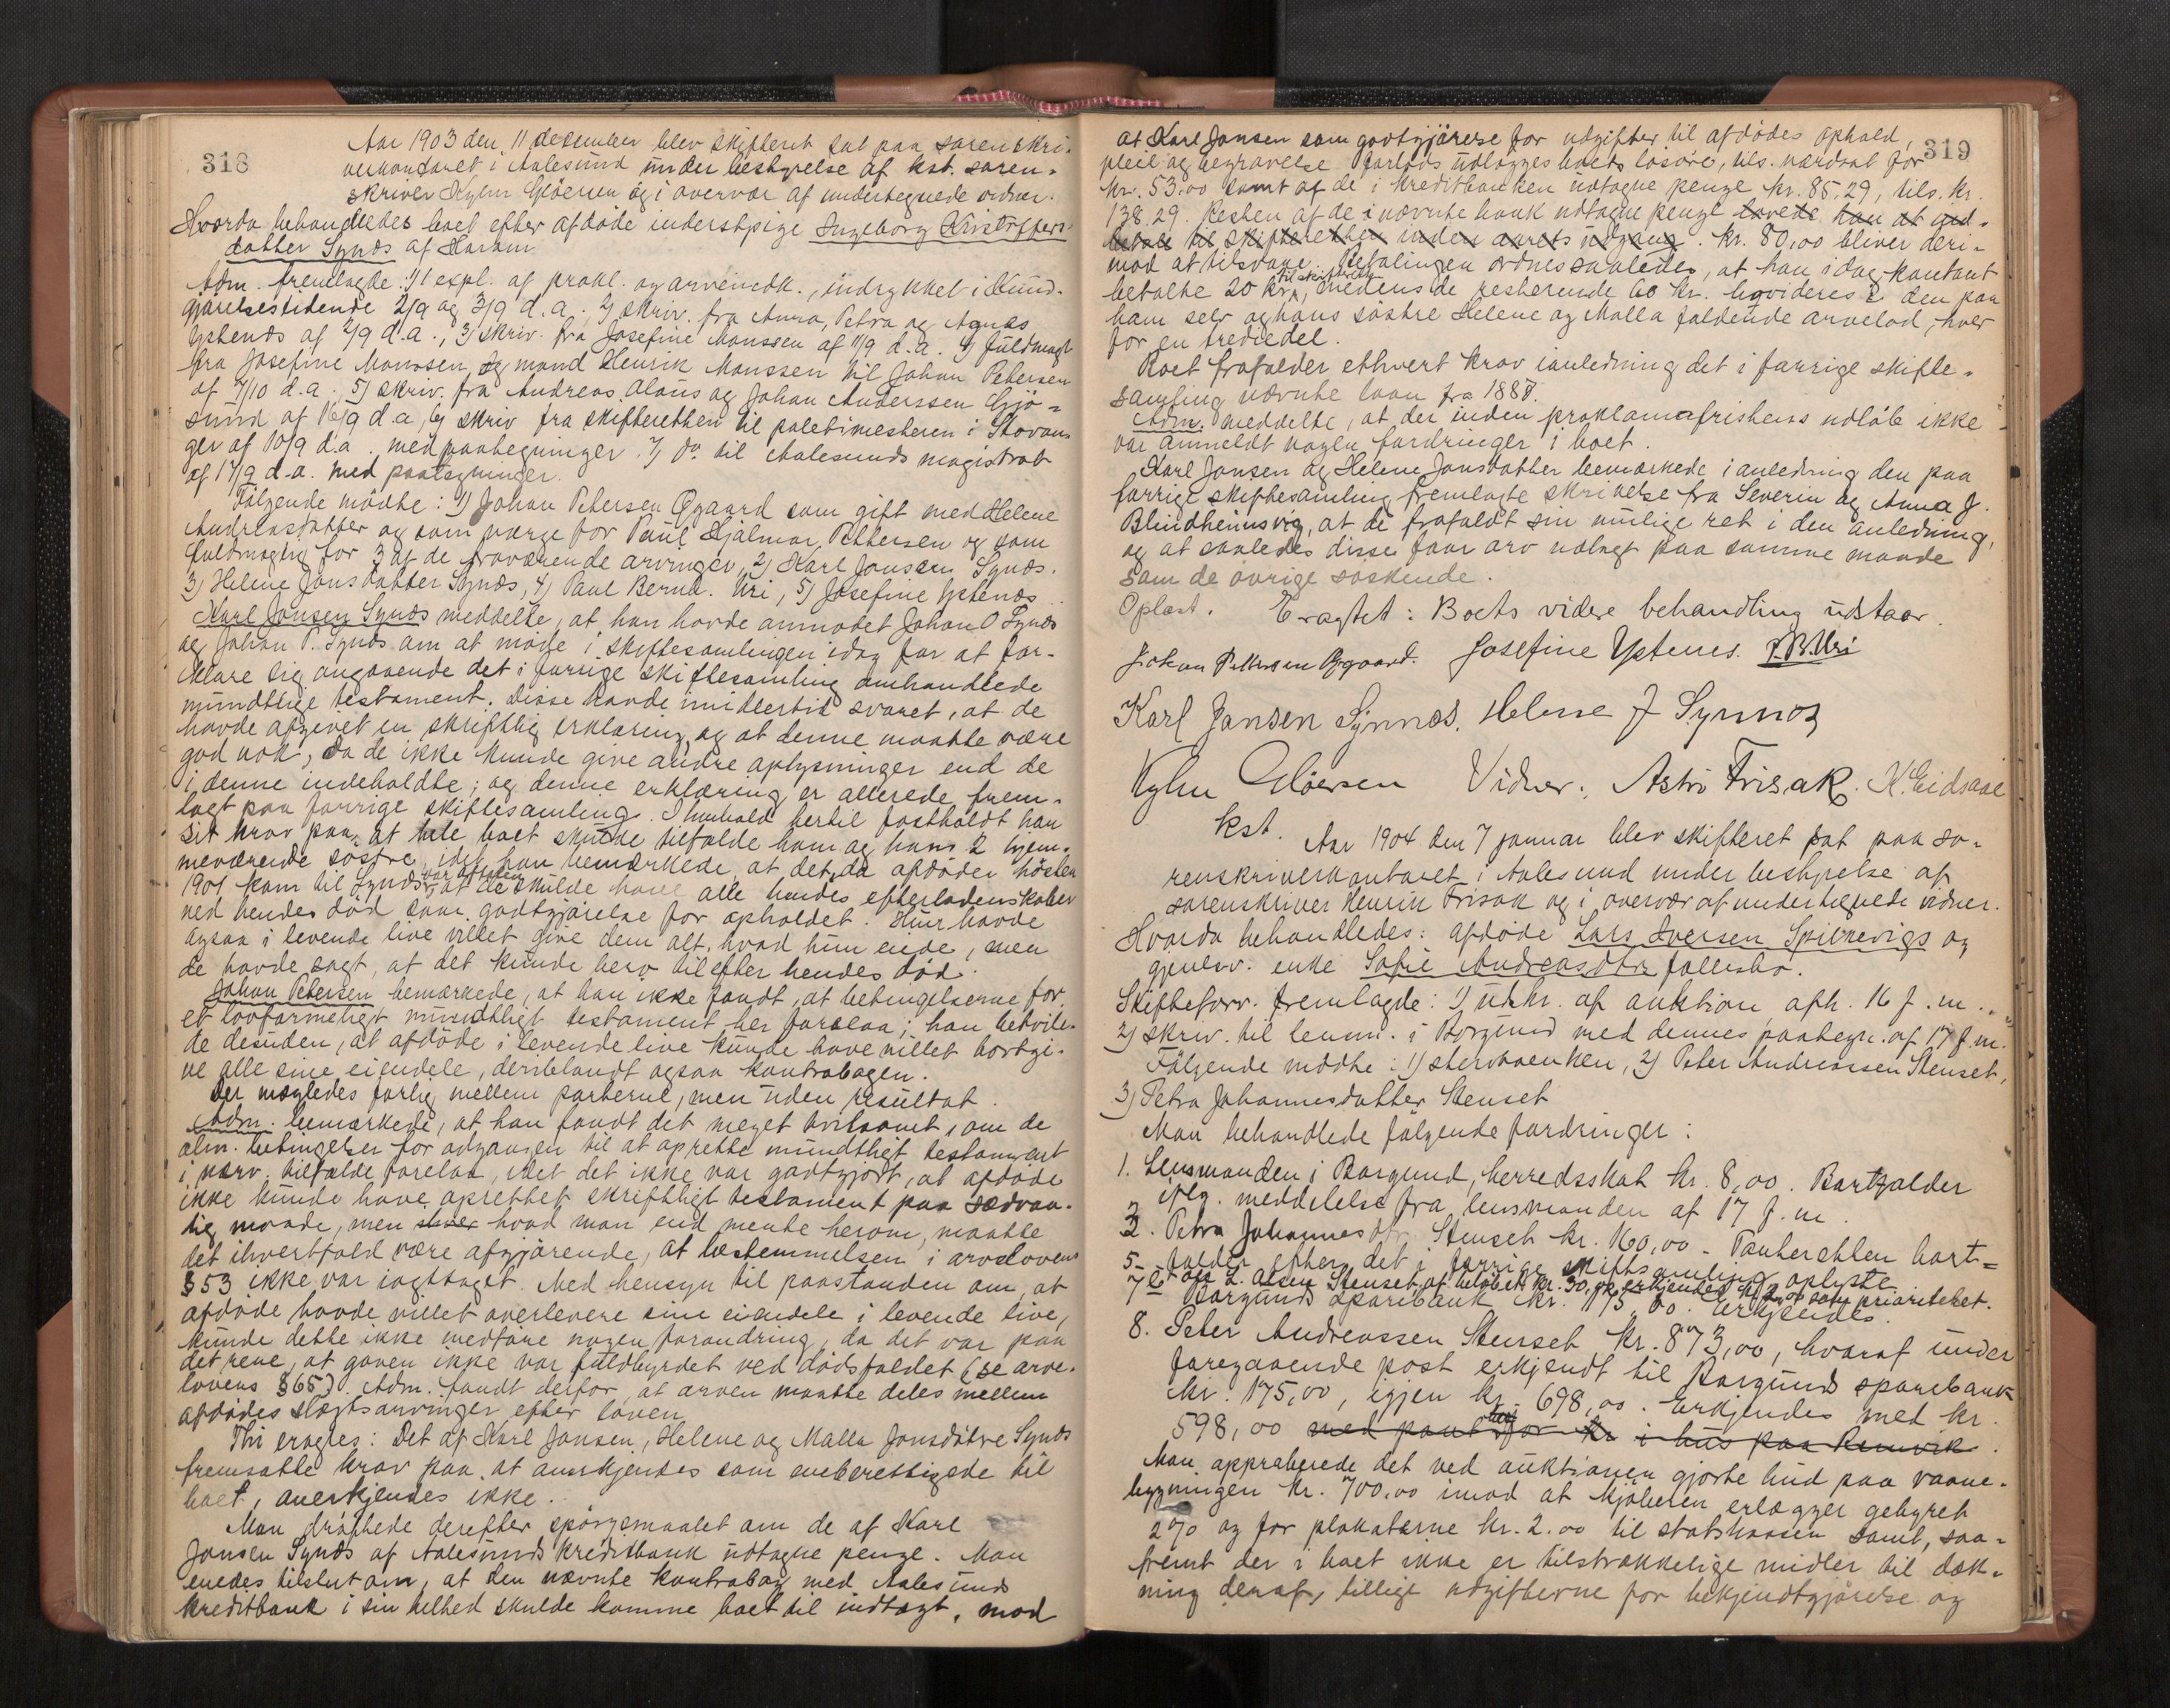 318
Aar 1903 den 11 desember blev skifteret sat paa sorenskri-
verkontoret i Aalesund under bestyrelse af kst. soren-
skriver Kylm Gløersen og i overvær af undertegnede vidner.
Hvorda behandledes boet efter afdøde inderstpige Ingeborg Kristoffers-
datter Synæs af Haram.
Adm. fremlagde: 1) 1 expl. af prokl. og arveindk., indrykket i Kund-
gjørelsestidende 2/9 og 3/9 d.a., 2) skriv. fra Anna, Petra og Agnes
Ystenæs af 2/9 d.a., 3) skriv. fra Josefine Monssen af 11/9 d.a. 4) fuldmagt
fra Josefine Monssen og mand Henrik Monssen til Johan Petersen
af 7/10 d.a. 5) skriv. fra Andreas, Olaus og Johan Anderssen Gjø-
sund af 16/9 d.a, 6) skriv fra skifteretten til politimesteren i Stavan-
ger af 10/9 d.a. med paategninger. 7) do til Aalesunds magistrat
af 17/9 d.a. med paategninger.
Følgende mødte: 1) Johan Petersen Øgaard som gift med Helene
Andreasdatter og som værge for Paul Hjalmar Pettersen og som
fuldmægtig for 3 af de fraværende arvinger, 2) Karl Jonssen Synæs.
3) Helene Jonsdatter Synæs, 4) Paul Bernt. Uri, 5) Josefine Ystenæs
Karl Jonsen Synæs meddelte, at han havde anmodet Johan O Synæs
og Johan P. Synæs om at møde i skiftesamlingen idag for at for-
klare sig angaaende det i forrige skiftesamling omhandlede
mundtlige testament. Disse havde imidlertid svaret, at de
havde afgivet en skriftlig erklæring, og at denne maatte være
god nok, da de ikke kunde give andre oplysninger end de
i denne indeholdte; og denne erklæring er allerede frem-
lagt paa forrige skiftesamling. I henhold hertil fastholdt han
sit krav paa, at hele boet skulde tilfalde ham og hans 2 hjem-
meværende søstre, idet han bemærkede, at det, da afdøde i høsten
1901 kom til Synæs, var aftalen, at de skulde have alle hendes efterladenskaber
ved hendes død som godtgjørelse for opholdet. Hun havde
ogsaa i levende live villet give dem alt, hvad hun eiede, men
de havde sagt, at det kunde bero til efter hendes død.
Johan Petersen bemærkede, at han ikke fandt, at betingelserne for
et lovformeligt mundtligt testament her forelaa; han betvile-
de desuden, at afdøde i levende live kunde have villet bortgi-
ve alle sine eiendele, deriblandt ogsaa kontrabogen.
Der mægledes forlig mellem parterne, men uden resultat.
Adm. bemærkede, at han fandt det meget tvilsomt, om de
alm. betingelser for adgangen til at oprette mundtligt testament
i nærv. tilfælde forelaa, idet det ikke var godtgjort, at afdøde
ikke kunde have oprettet skriftligt testament paa sædvan-
lig maade, men hvad man end mente herom, maatte
det ihvertfald være afgjørende, at bestemmelsen i arvelovens
§53 ikke var iagttaget. Med hensyn til paastanden om, at
afdøde havde villet overlevere sine eiendele i levende live,
kunde dette ikke medføre nogen forandring, da det var paa
det rene, at gaven ikke var fuldbyrdet ved dødsfaldet (se arve-
lovens §65). Adm. fandt derfor, at arven maatte deles mellem
afdødes slægtsarvinger efter loven.
Thi eragtes: Det af Karl Jonsen, Helene og Malla Jonsdøtre Synæs
fremsatte krav paa at anerkjendes som eneberettigede til
boet, anerkjendes ikke.
Man drøftede derefter spørgsmaalet om de af Karl
Jonsen Synæs af Aalesunds kreditbank udtagne penge. Man
enedes tilslut om, at den nævnte kontrabog med Aalesunds
kreditbank i sin helhed skulde komme boet til indtægt, mod
319
at Karl Jonsen som godtgjørelse for udgifter til afdødes ophold,
pleie og begravelse forlods udlægges boets løsøre, tils. værdsat for
kr. 53,00 samt af de i kreditbanken udtagne penge kr. 85,29, tils. kr.
138.29. Resten af de i nævnte bank udtagne penge lovede han at ind-
betale til skifteretten inden aarets udgang. kr. 80,00 bliver deri-
mod at tilsvare. Betalingen ordnes saaledes, at han idag kontant
betalte 20 kr. til skifteretten, medens de resterende 60 kr. likvideres i den paa
ham selv og hans søstre Helene og Malla faldende arvelod, hver
for en trediedel.
Boet frafalder ethvert krav i anledning det i forrige skifte-
samling nævnte laan fra 1888.
Adm. meddelte, at der inden proklamafristens udløb ikke
var anmeldt nogen fordringer i boet.
Karl Jonsen og Helene Jonsdatter bemærkede i anledning den paa
forrige skiftesamling fremlagte skrivelse fra Severin og Anna J.
Blindheimsvig, at de frafaldt sin mulige ret i den anledning,
og at saaledes disse faar arv udlagt paa samme maade
som de øvrige søskende.
Oplæst. Eragtet: Boets videre behandling udstaar.
Johan Pettersen Øgaard. Josefine Ystenes. P.B.Uri
Karl Jansen Synnæs. Helene J Synnæs
Kylm Gløersen Vidner: Astri Frisak. K. Eidsaae
kst.
Aar 1904 den 7 januar blev skifteret sat paa so-
renskriverkontoret i Aalesund under bestyrelse af
sorenskriver Henrik Frisak og i overvær af undertegnede vidner.
Hvorda behandledes: afdøde Lars Iversen Spilkevigs og
gjenlev. enke Sofie Andreasdtrs fællesbo.
Skifteforv. fremlagde: 1) utskr. af auktion afh. 16 f.m..
2) skriv. til lensm. i Borgund med dennes paategn. af 17 f.m.
Følgende mødte: 1) stervboenken, 2) Peter Andreassen Stenset,
3) Petra Johannesdatter Stenset
Man behandlede følgende fordringer:
1. Lensmanden i Borgund, herredsskat kr. 8,00. Bortfalder
iflg. meddelelse fra lensmanden af 17 f.m.
2. Petra Johannesdtr. Stenset kr. 160,00. Panteretten bort-
falder efter det i forrige skiftesamling oplyste
5. L. Olsen Stenset, af beløbet kr. 30,00 erkjendes kr. 12,00 som prioriteret.
7. Borgunds sparebank kr. 175,00. Erkjendes.
8. Peter Andreassen Stenset kr. 873,00, hvoraf under
foregaaende post erkjendt til Borgunds sparebank
kr. 175,00, igjen kr. 698,00. Erkjendes med kr.
598,00 med pant for kr i hus paa Remvik.
Man approberede det ved auktionen gjorte bud paa vaane-
bygningen kr. 700.00 imod at kjøberen erlægger gebyret
2% og for plakaterne kr. 2.00 til statskassen samt, saa-
fremt der i boet ikke er tilstrækkelige midler til dæk-
ning deraf, tillige udgifterne for bekjendtgjørelse og